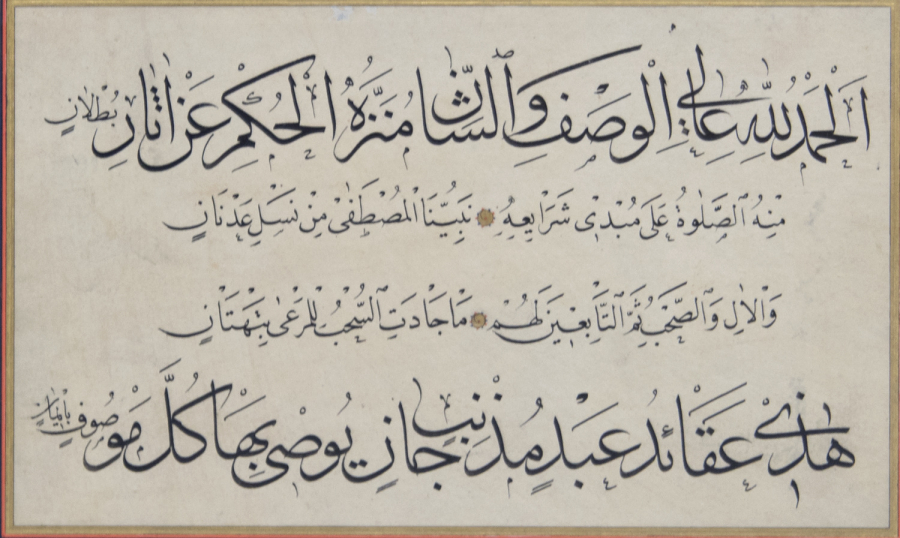 اَلْحَمْدُ لِلّٰهِ عَالِي الْوَصْفِ وَالشَّانِ مُنَزَّهُ الْحُكْمِ عَنْ اٰثَارِ بُطْلَانٍ
مِنْهُ الصَّلٰوةُ عَلٰى مُبْدِى شَرَايِعِهِ نَبِيُّنَا الْمُصْطَفٰى مِنْ نَسْلِ عَدْنَانٍ
وَالْاٰلِ وَالصَّحْبِ ثُمَّ التَّابِعِينَ لَهُمْ مَا جَادَتِ السُّحْبُ لِلْمَرْعٰى بِتَهْتَانٍ
هٰذِى عَقَائِدُ عَبْدٍ مُذْنِبٍ جَانٍ يُوصٰى بِهَا كُلَّ مَوْصُوفٍ بِاِيْمَانٍ